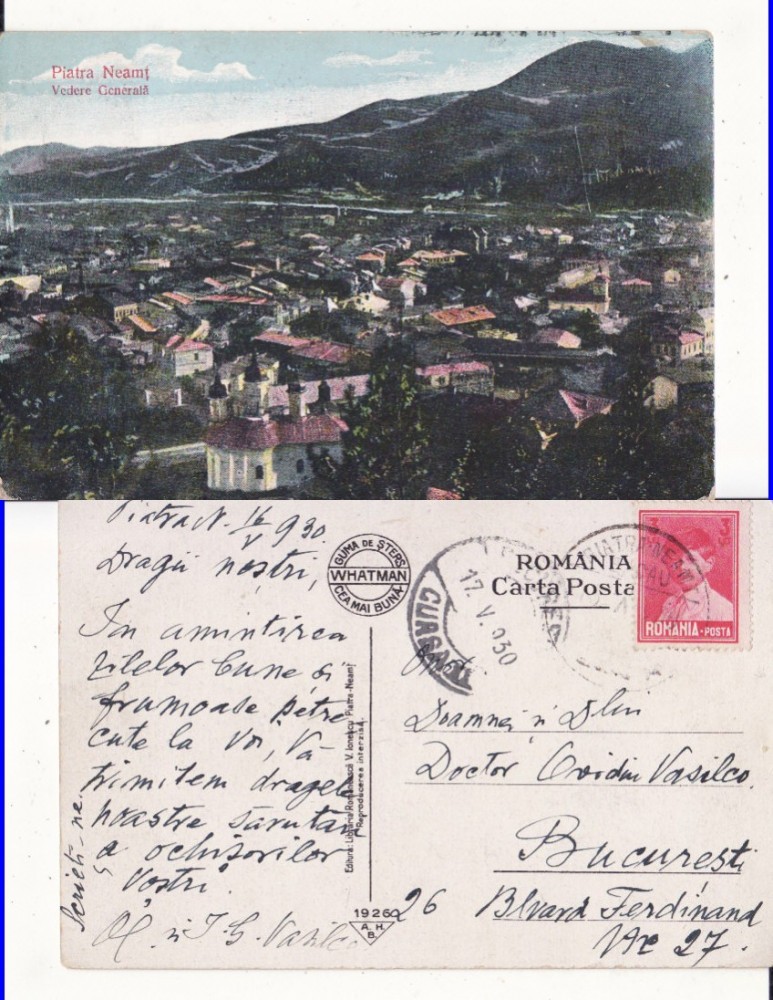 Piatra Neamț
Vedere Generală
Piatra N. 16/V 930.
Dragii noștri,
In amintirea
zilelor bune și
frumoase petre
cute la Voi, Vă
trimitem dragele
noastre sărutări
a ochișorilor
Voștri.
și I. G. Vasilco
Scrieți-ne.
GUMA DE ȘTERS
WHATMAN
CEA MAI BUNĂ
Editura Librăria Românească V. Ionescu Piatra-Neamț
Reproducerea interzisă.
1926
A. H.
B.
ROMÂNIA
Carta Posta
CURSA
17. V. 930
PIATRA-NEAMȚ
3
ROMÂNIA·POSTA
Doamnei și Dlui
Doctor Ovidiu Vasilco
București
26 Blvard Ferdinand
27.